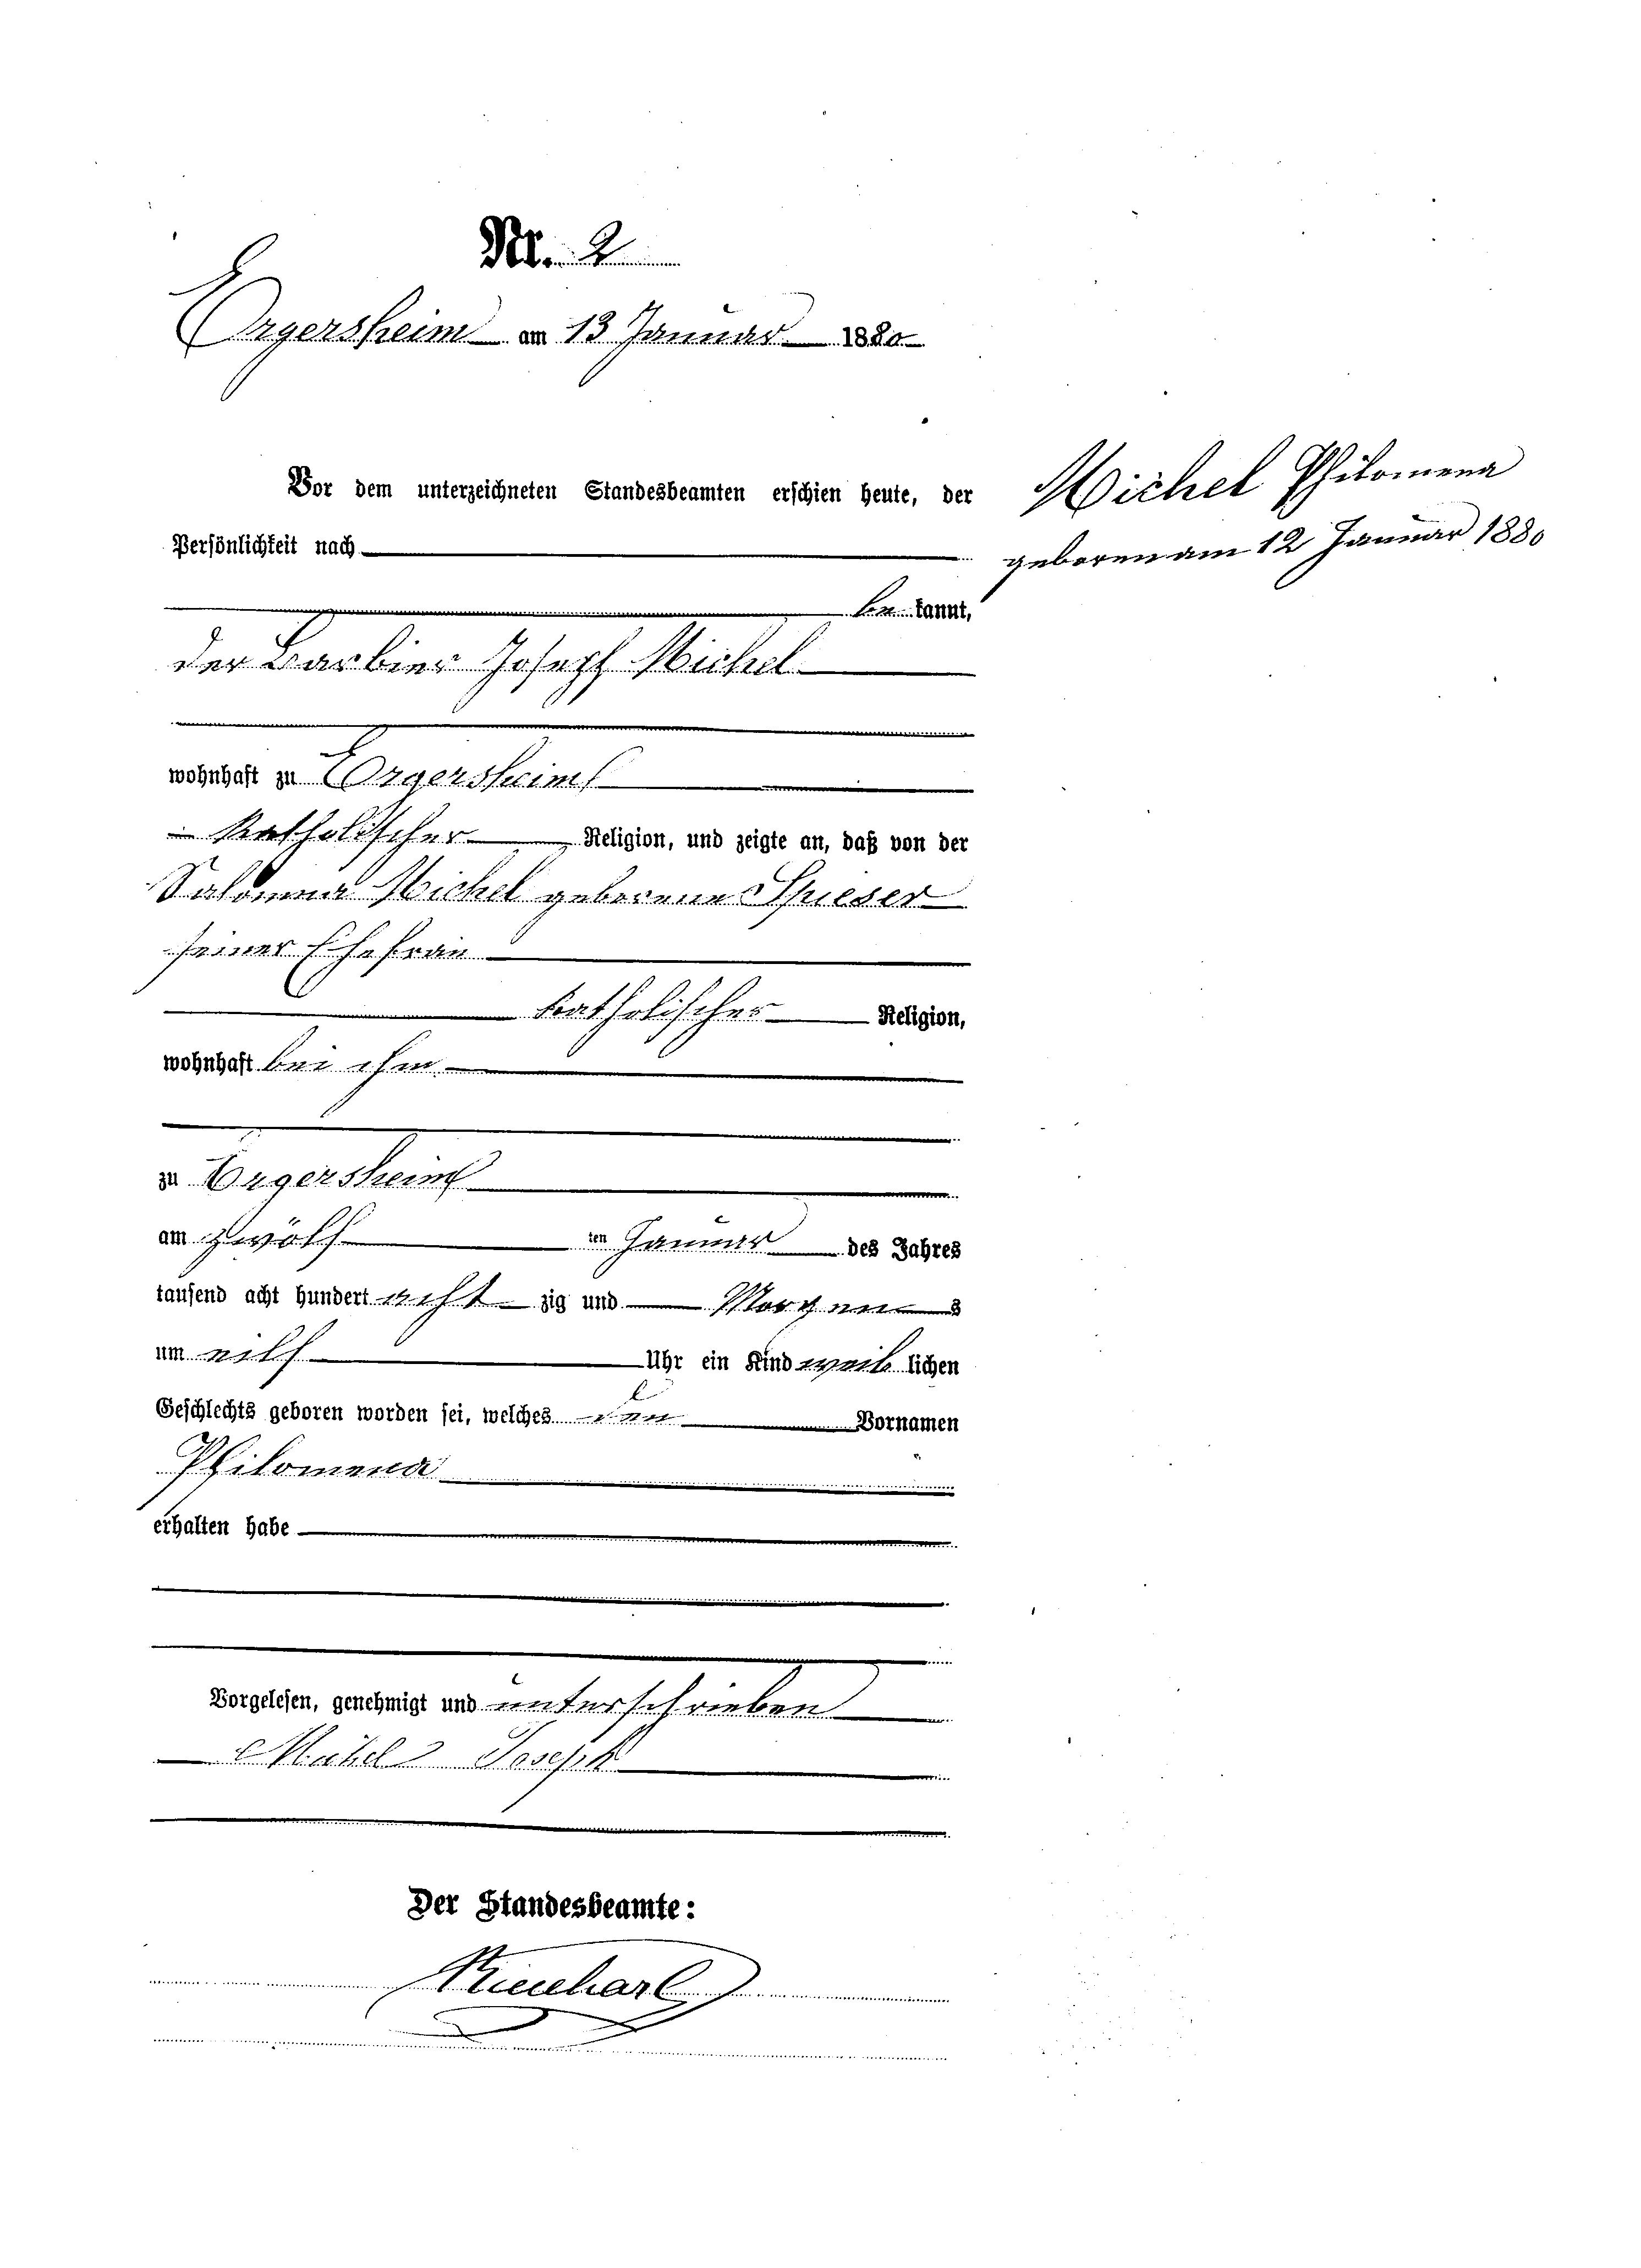 Nr. 2
Ergersheim am 13 Januar 1880
Vor dem unterzeichneten Standesbeamten erschien heute, der
Persönlichkeit nach
be kannt,
der Barbier Joseph Michel
wohnhaft zu Ergersheim
katholischer Religion, und zeigte an, daß von der
Salomea Michel geborene Spieser
seiner Ehefrau
katholischer Religion,
wohnhaft bei ihm
zu Ergersheim
am zwölf ten Januar des Jahres
tausend acht hundert acht zig und Morgens
um eilf Uhr ein Kind weib lichen
Geschlechts geboren worden sei, welches den Vornamen
Philomena
erhalten habe
Vorgelesen, genehmigt und unterschrieben
Michel Joseph
Der Standesbeamte:
Michel Philomena
geboren am 12 Januar 1880